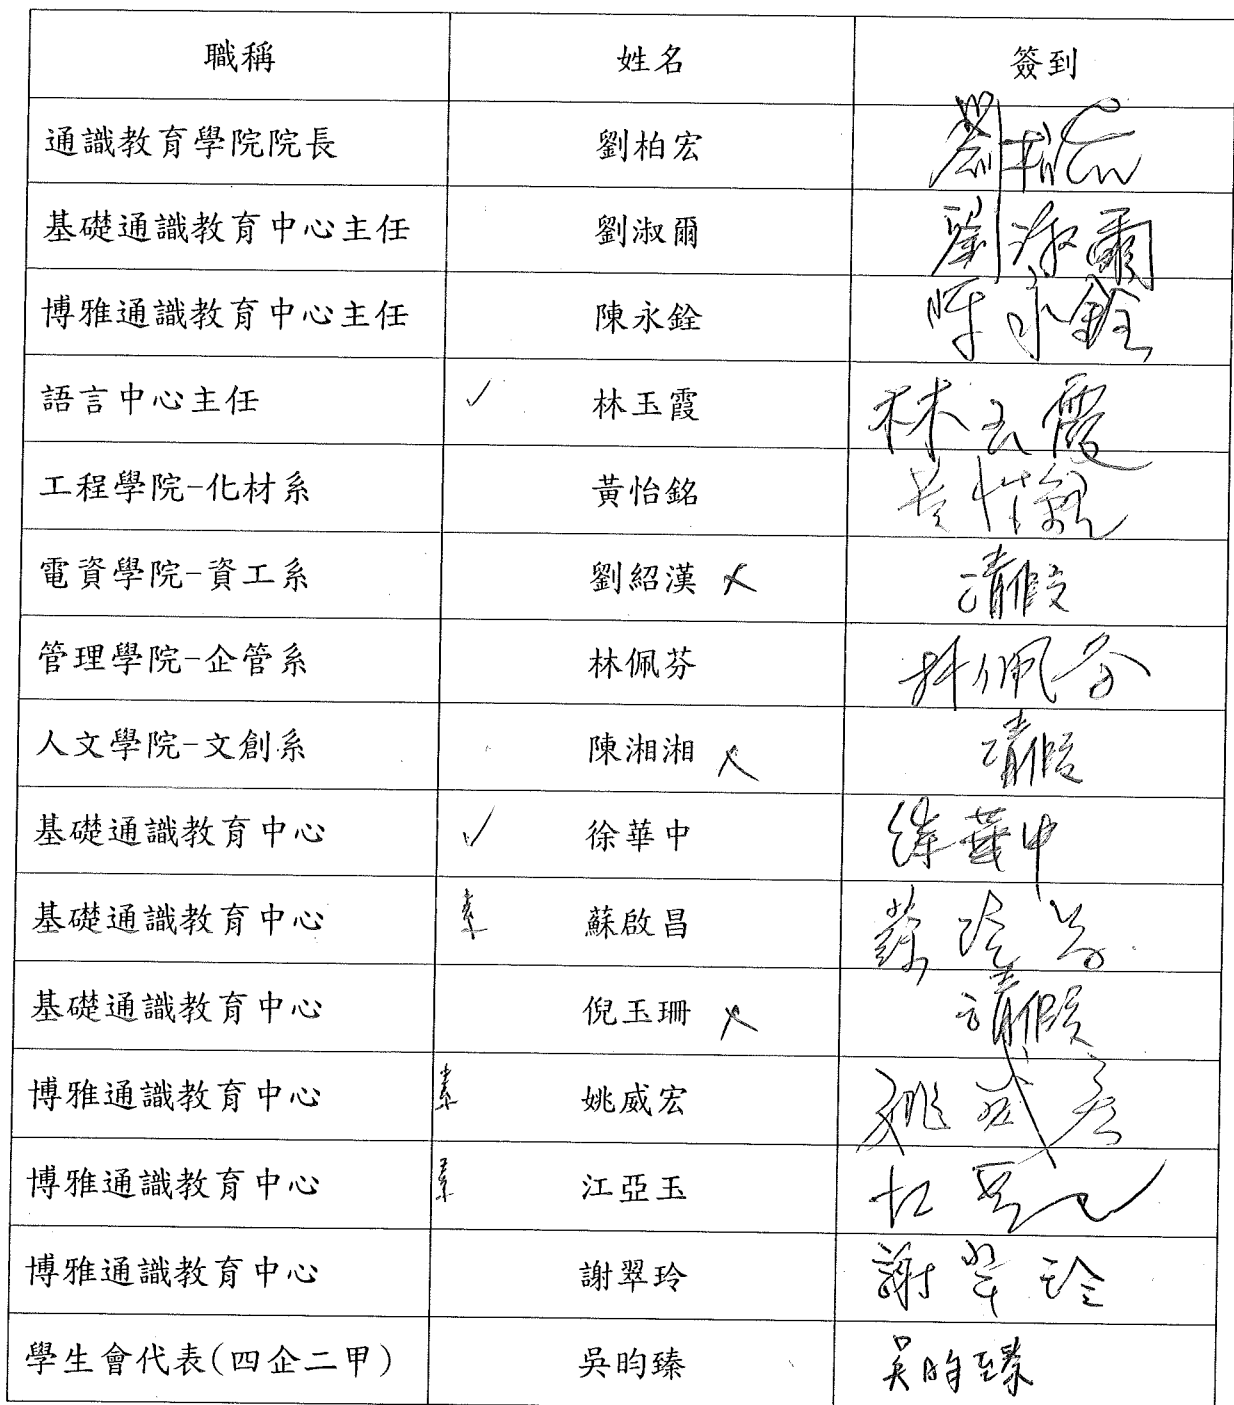 職稱 姓名 簽到
通識教育學院院長 劉柏宏 劉柏宏
基礎通識教育中心主任 劉淑爾 劉淑爾
博雅通識教育中心主任 陳永銓 陳永銓
語言中心主任 ✓ 林玉霞 林玉霞
工程學院-化材系 黃怡銘 黃怡銘
電資學院-資工系 劉紹漢 ✗ 請假
管理學院-企管系 林佩芬 林佩芬
人文學院-文創系 陳湘湘 ✗ 請假
基礎通識教育中心 ✓ 徐華中 徐華中
基礎通識教育中心 素 蘇啟昌 蘇啟昌
基礎通識教育中心 倪玉珊 ✗ 請假
博雅通識教育中心 素 姚威宏 姚威宏
博雅通識教育中心 素 江亞玉 江亞玉
博雅通識教育中心 謝翠玲 謝翠玲
學生會代表(四企二甲) 吳昀臻 吳昀臻